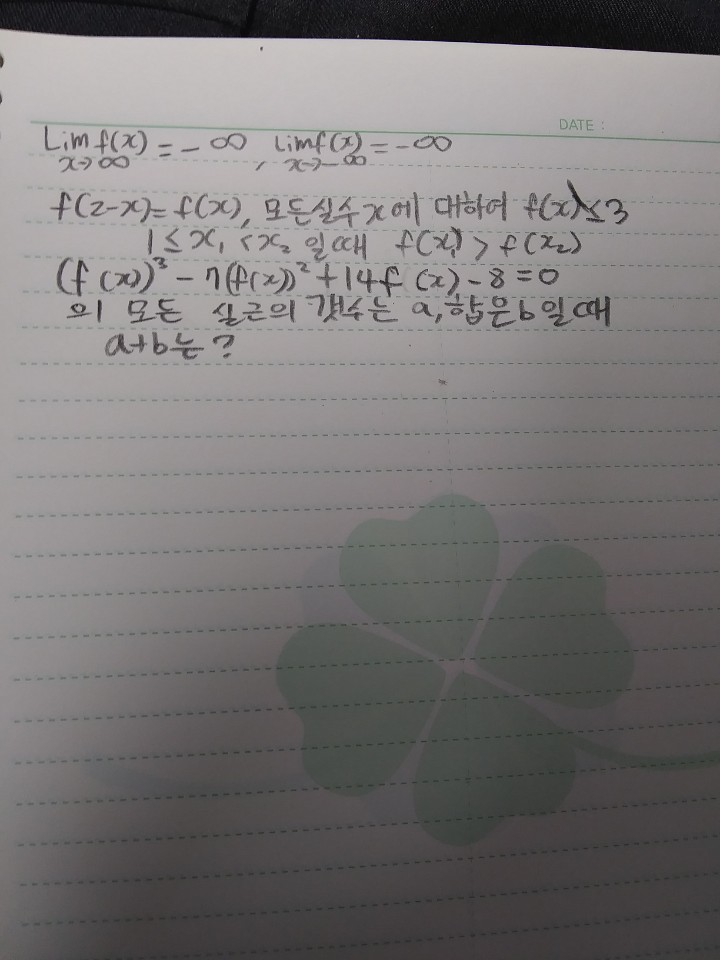 DATE :
Lim f(x) = -∞, Lim f(x) = -∞
x→∞ x→-∞
f(2-x)=f(x), 모든실수 x에 대하여 f(x)≤3
1≤x₁<x₂ 일때 f(x₁)>f(x₂)
(f(x))³-7(f(x))²+14f(x)-8=0
의 모든 실근의 갯수는 a, 합은 b 일때
a+b는?